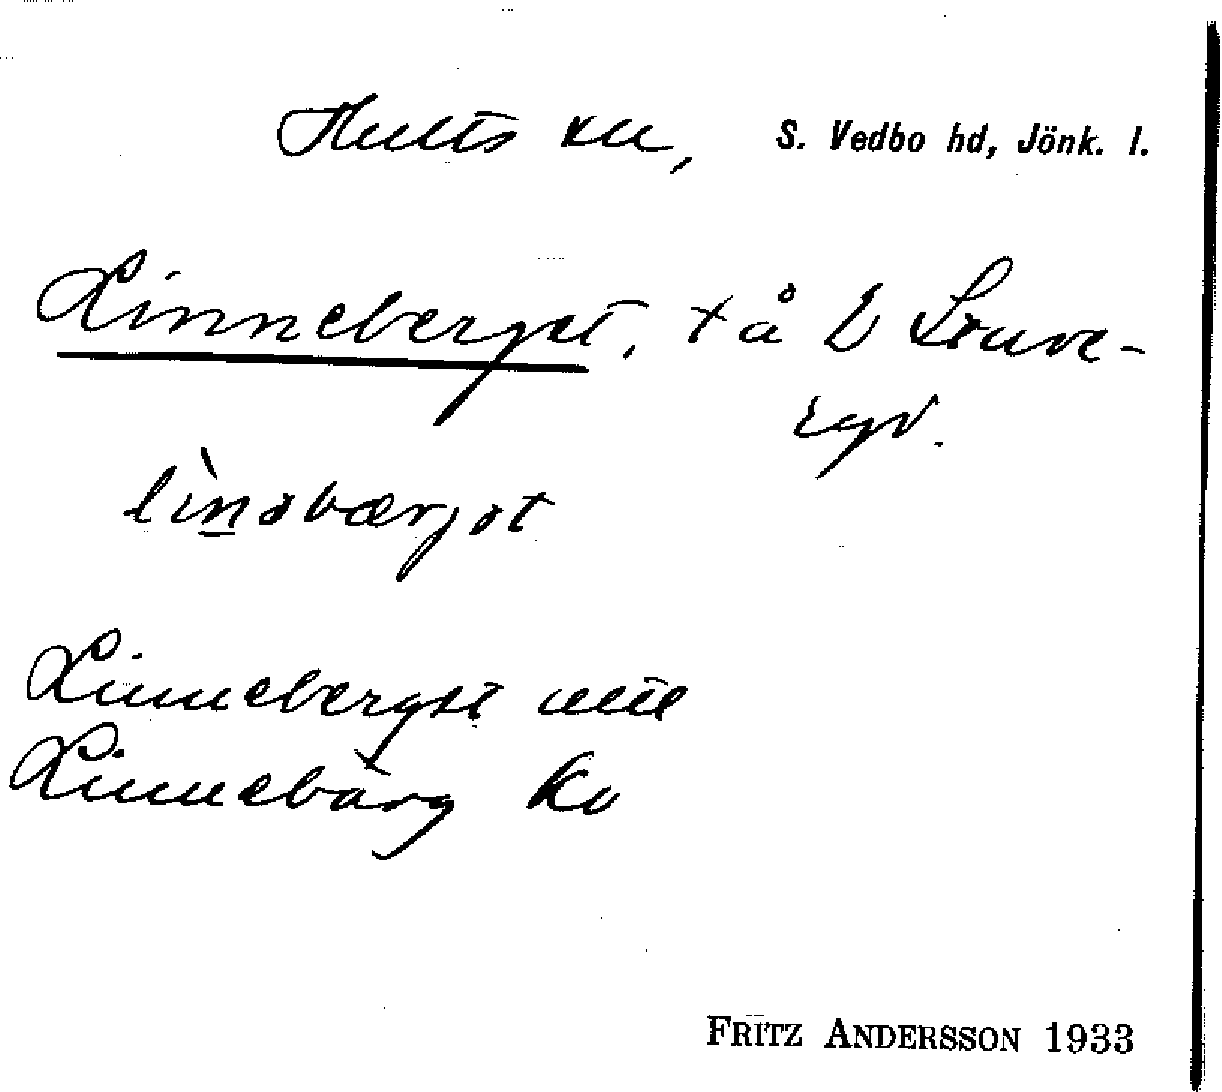 Hults sn, S. Vedbo hd, Jönk. l.
Linneberget, t å L Stuve-
ryd.
lìnəbærjət
Linneberget uttl
Linnebärg Ko
FRITZ ANDERSSON 1933